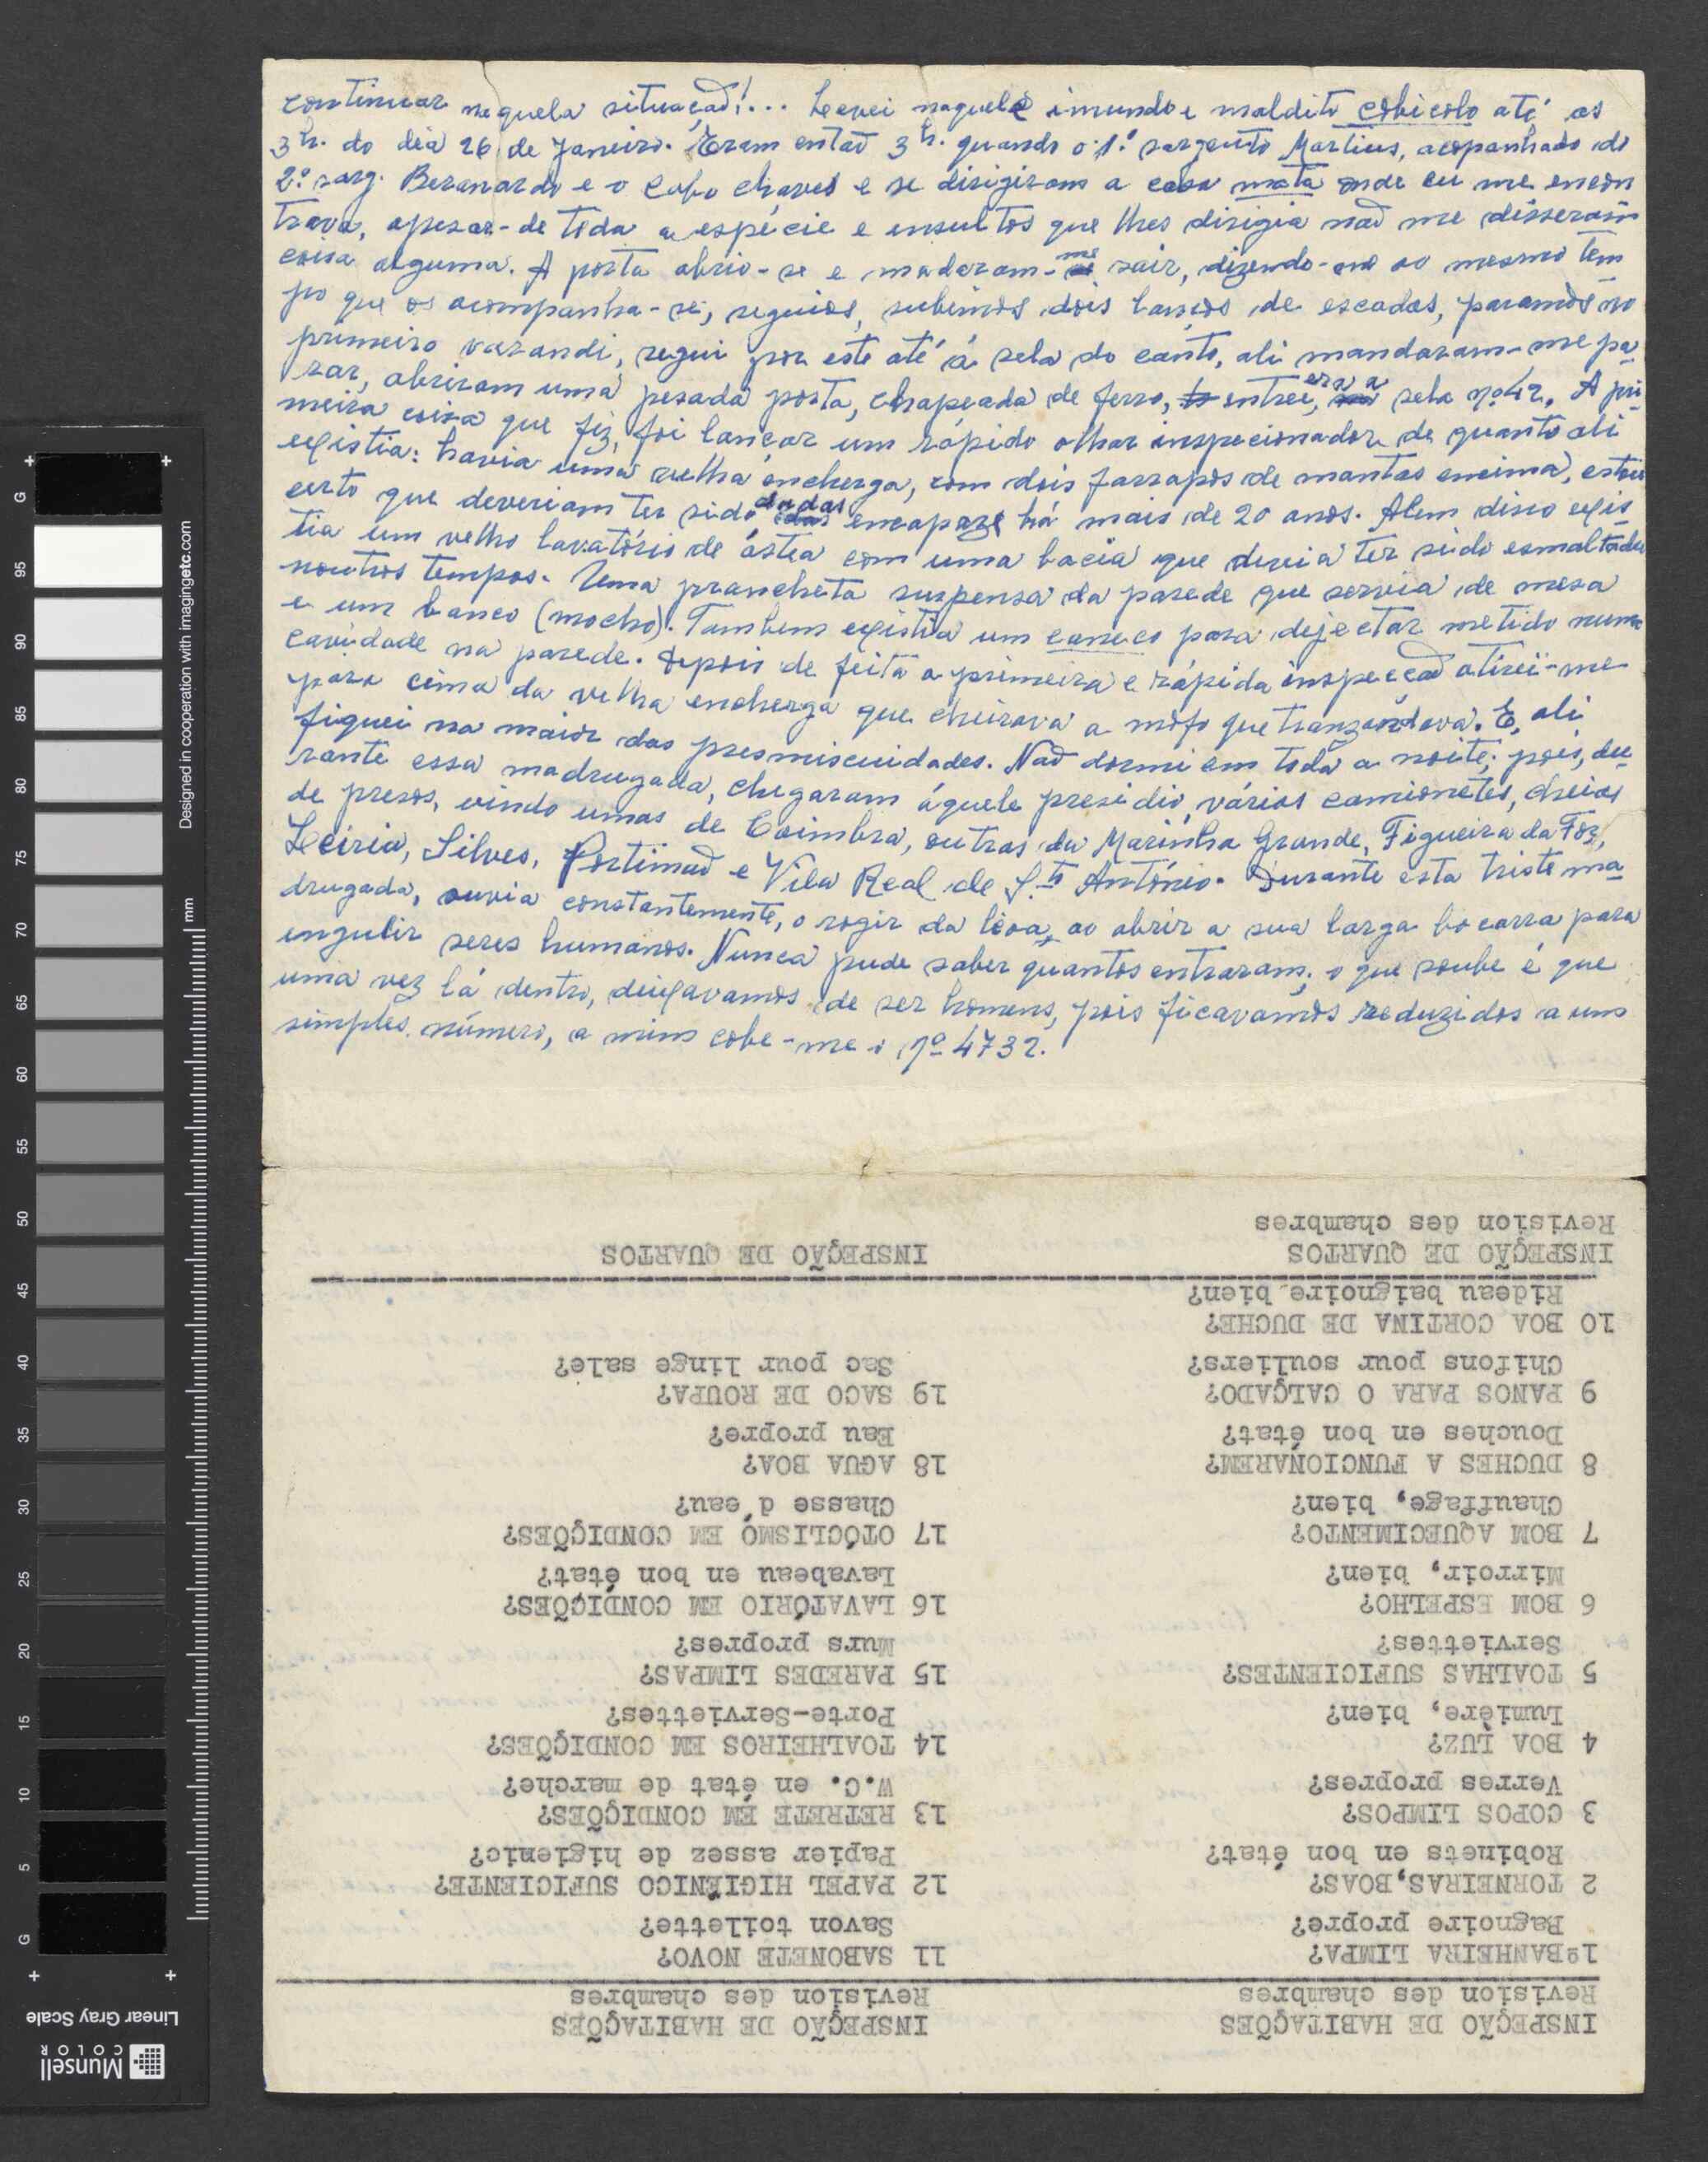 continuar naquela situação!... Levei naquele imundo e maldito cobicolo até as
3h. do dia 26 de Janeiro. Eram então 3h. quando o 1º sargento Martins, acopanhado do
2º sarg. Beranardo e o Cabo chaves e se dirigiram a casa mata onde eu me encon
trava, apesar-de toda a espécie e ensultos que lhes dirigia não me disseram
coisa alguma. A porta abrio-se e madaram-me sair, dizendo-me ao mesmo tem
po que os acompanha-se, seguios, subimos dois lanços de escadas, paramos no
primeiro varandi, segui por este até á sela do canto, ali mandaram-me pa
rar, abriram uma pesada porta, chapeada de ferro, entrei, era a sela nº 42. A pri
meira coisa que fiz, foi lançar um rápido olhar inspecionador de quanto ali
egistia: havia uma velha encherga, com dois farrapos de mantas encima, estou
certo que deveriam ter sido dadas encapaze há mais de 20 anos. Alem disso egis
tia um velho lavatório de ástea com uma bacia que devia ter sido esmaltada
noutros tempos. Uma prancheta suspensa da parede que servia de mesa
e um banco (mocho). Tambem egistia um caneco para dejectar metido numa
cavidade na parede. Depois de feita a primeira e rápida inspecção atirei-me
para cima da velha encherga que cheirava a mofo que tranzordava. E, ali
fiquei na maior das presmiscuidades. Não dormi em toda a noite; pois, du
rante essa madrugada, chegaram áquele presidio, várias camionetes, cheias
de presos, vindo umas de Coimbra, outras da Marinha Grande, Figueira da Foz,
Leiria, Silves, Portimão e Vila Real de Stº António. Durante esta triste ma
drugada, ouvia constantemente, o rogir da leoa, ao abrir a sua larga bocarra para
engulir seres humanos. Nunca pude saber quantos entraram; o que soube é que
uma vez lá dentro, deigavamos de ser homens, pois ficavamos reduzidos a um
simples número, a mim cobe-me o nº 4732.
INSPEÇÃO DE HABITAÇÕES
Revision des chambres
1ºBANHEIRA LIMPA?
Bagnoire propre?
2 TORNEIRAS,BOAS?
Robinets en bon état?
3 COPOS LIMPOS?
Verres propres?
4 BOA LUZ?
Lumière, bien?
5 TOALHAS SUFICIENTES?
Serviettes?
6 BOM ESPELHO?
Mirroir, bien?
7 BOM AQUECIMENTO?
Chauffage, bien?
8 DUCHES A FUNCIONÁREM?
Douches en bon état?
9 PANOS PARA O CALÇADO?
Chifons pour souliers?
10 BOA CORTINA DE DUCHE?
Rideau baignoire bien?
INSPEÇÃO DE QUARTOS
Revision des chambres
INSPEÇÃO DE HABITAÇÕES
Revision des chambres
11 SABONETE NOVO?
Savon toilette?
12 PAPEL HIGIÉNICO SUFICIENTE?
Papier assez de higienic?
13 RETRETE EM CONDIÇÕES?
W.C. en état de marche?
14 TOALHEIROS EM CONDIÇÕES?
Porte-Serviettes?
15 PAREDES LIMPAS?
Murs propres?
16 LAVATÓRIO EM CONDIÇÕES?
Lavabeau en bon état?
17 OTÓCLISMO EM CONDIÇÕES?
Chasse d'eau?
18 AGUA BOA?
Eau propre?
19 SACO DE ROUPA?
Sac pour linge sale?
INSPEÇÃO DE QUARTOS
Designed in cooperation with imagingetc.com
mm
G
95
90
85
80
75
70
65
60
55
50
45
40
35
30
25
20
15
10
5
G
Linear Gray Scale
Munsell
COLOR